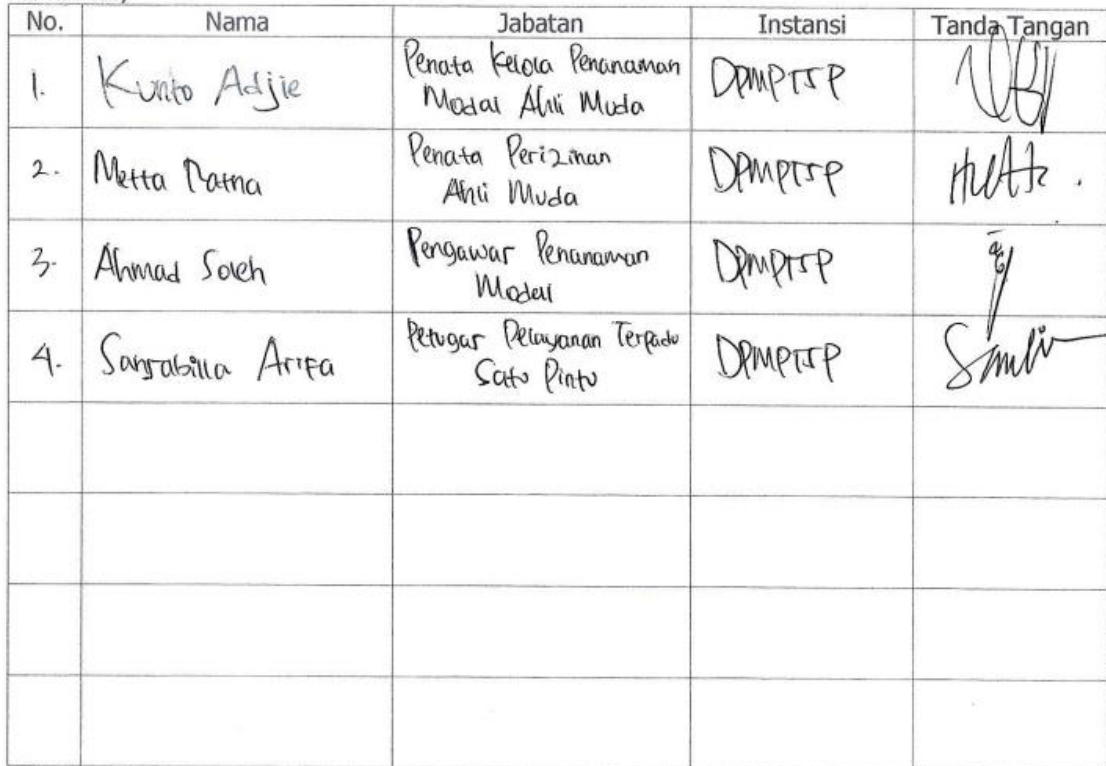 No. Nama Jabatan Instansi Tanda Tangan
1. Kunto Adjie Penata Kelola Penanaman Modal Ahli Muda DPMPTSP
2. Metta Ratna Penata Perizinan Ahli Muda DPMPTSP
3. Ahmad Soleh Pengawas Penanaman Modal DPMPTSP
4. Sansabilla Arifa Petugas Pelayanan Terpadu Satu Pintu DPMPTSP